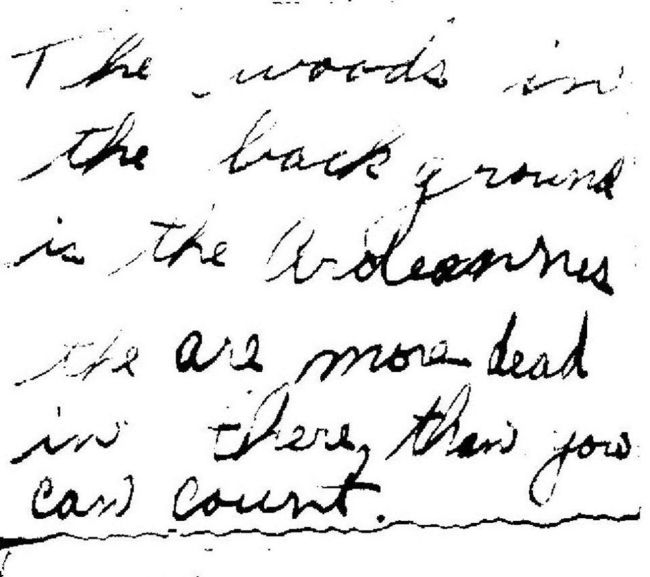 The woods in
the back ground
is the Ardeannes
the are more dead
in there, than you
can count.